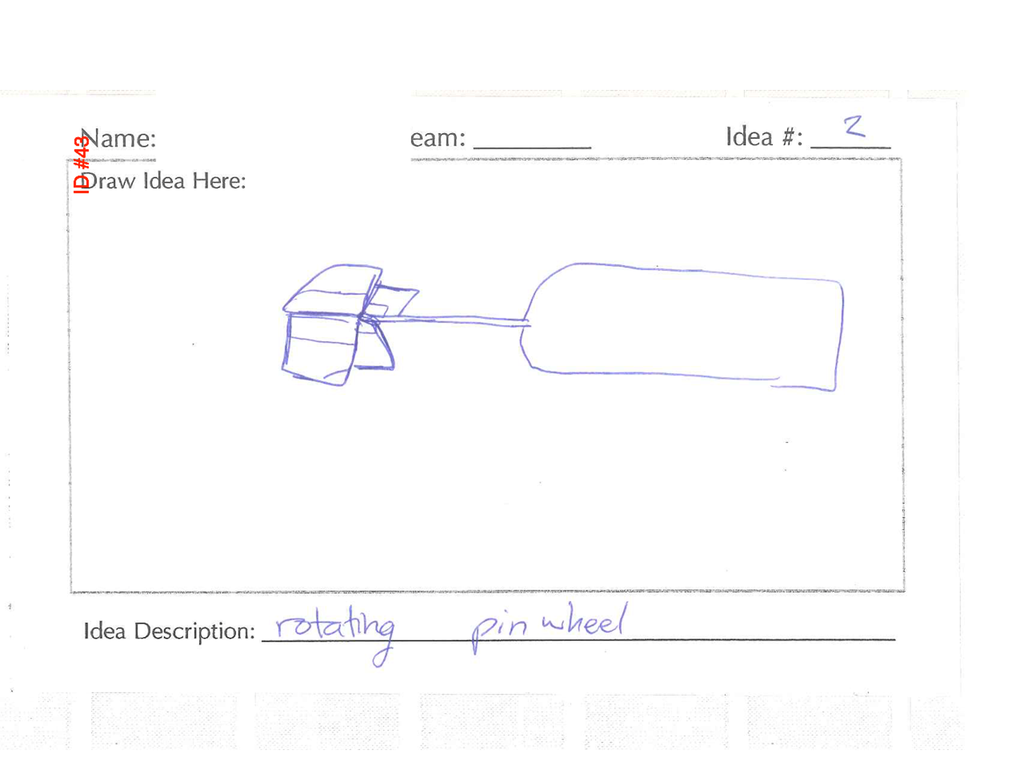 ID #43
Name: eam: Idea #: 2
Draw Idea Here:
Idea Description: rotating pin wheel